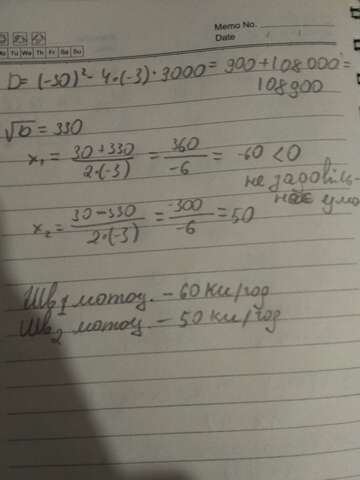 Memo No.
Date
Mo Tu We Th Fr Sa Su
D = (-30)² - 4·(-3)·9000 = 900 + 108000 =
108900
√D = 330
x₁ = (30 + 330)/(2·(-3)) = 360/(-6) = -60 < 0
не задовіль-
няє умо
x₂ = (30 - 330)/(2·(-3)) = -300/(-6) = 50
Шв₁ мотоц. - 60 км/год
Шв₂ мотоц. - 50 км/год